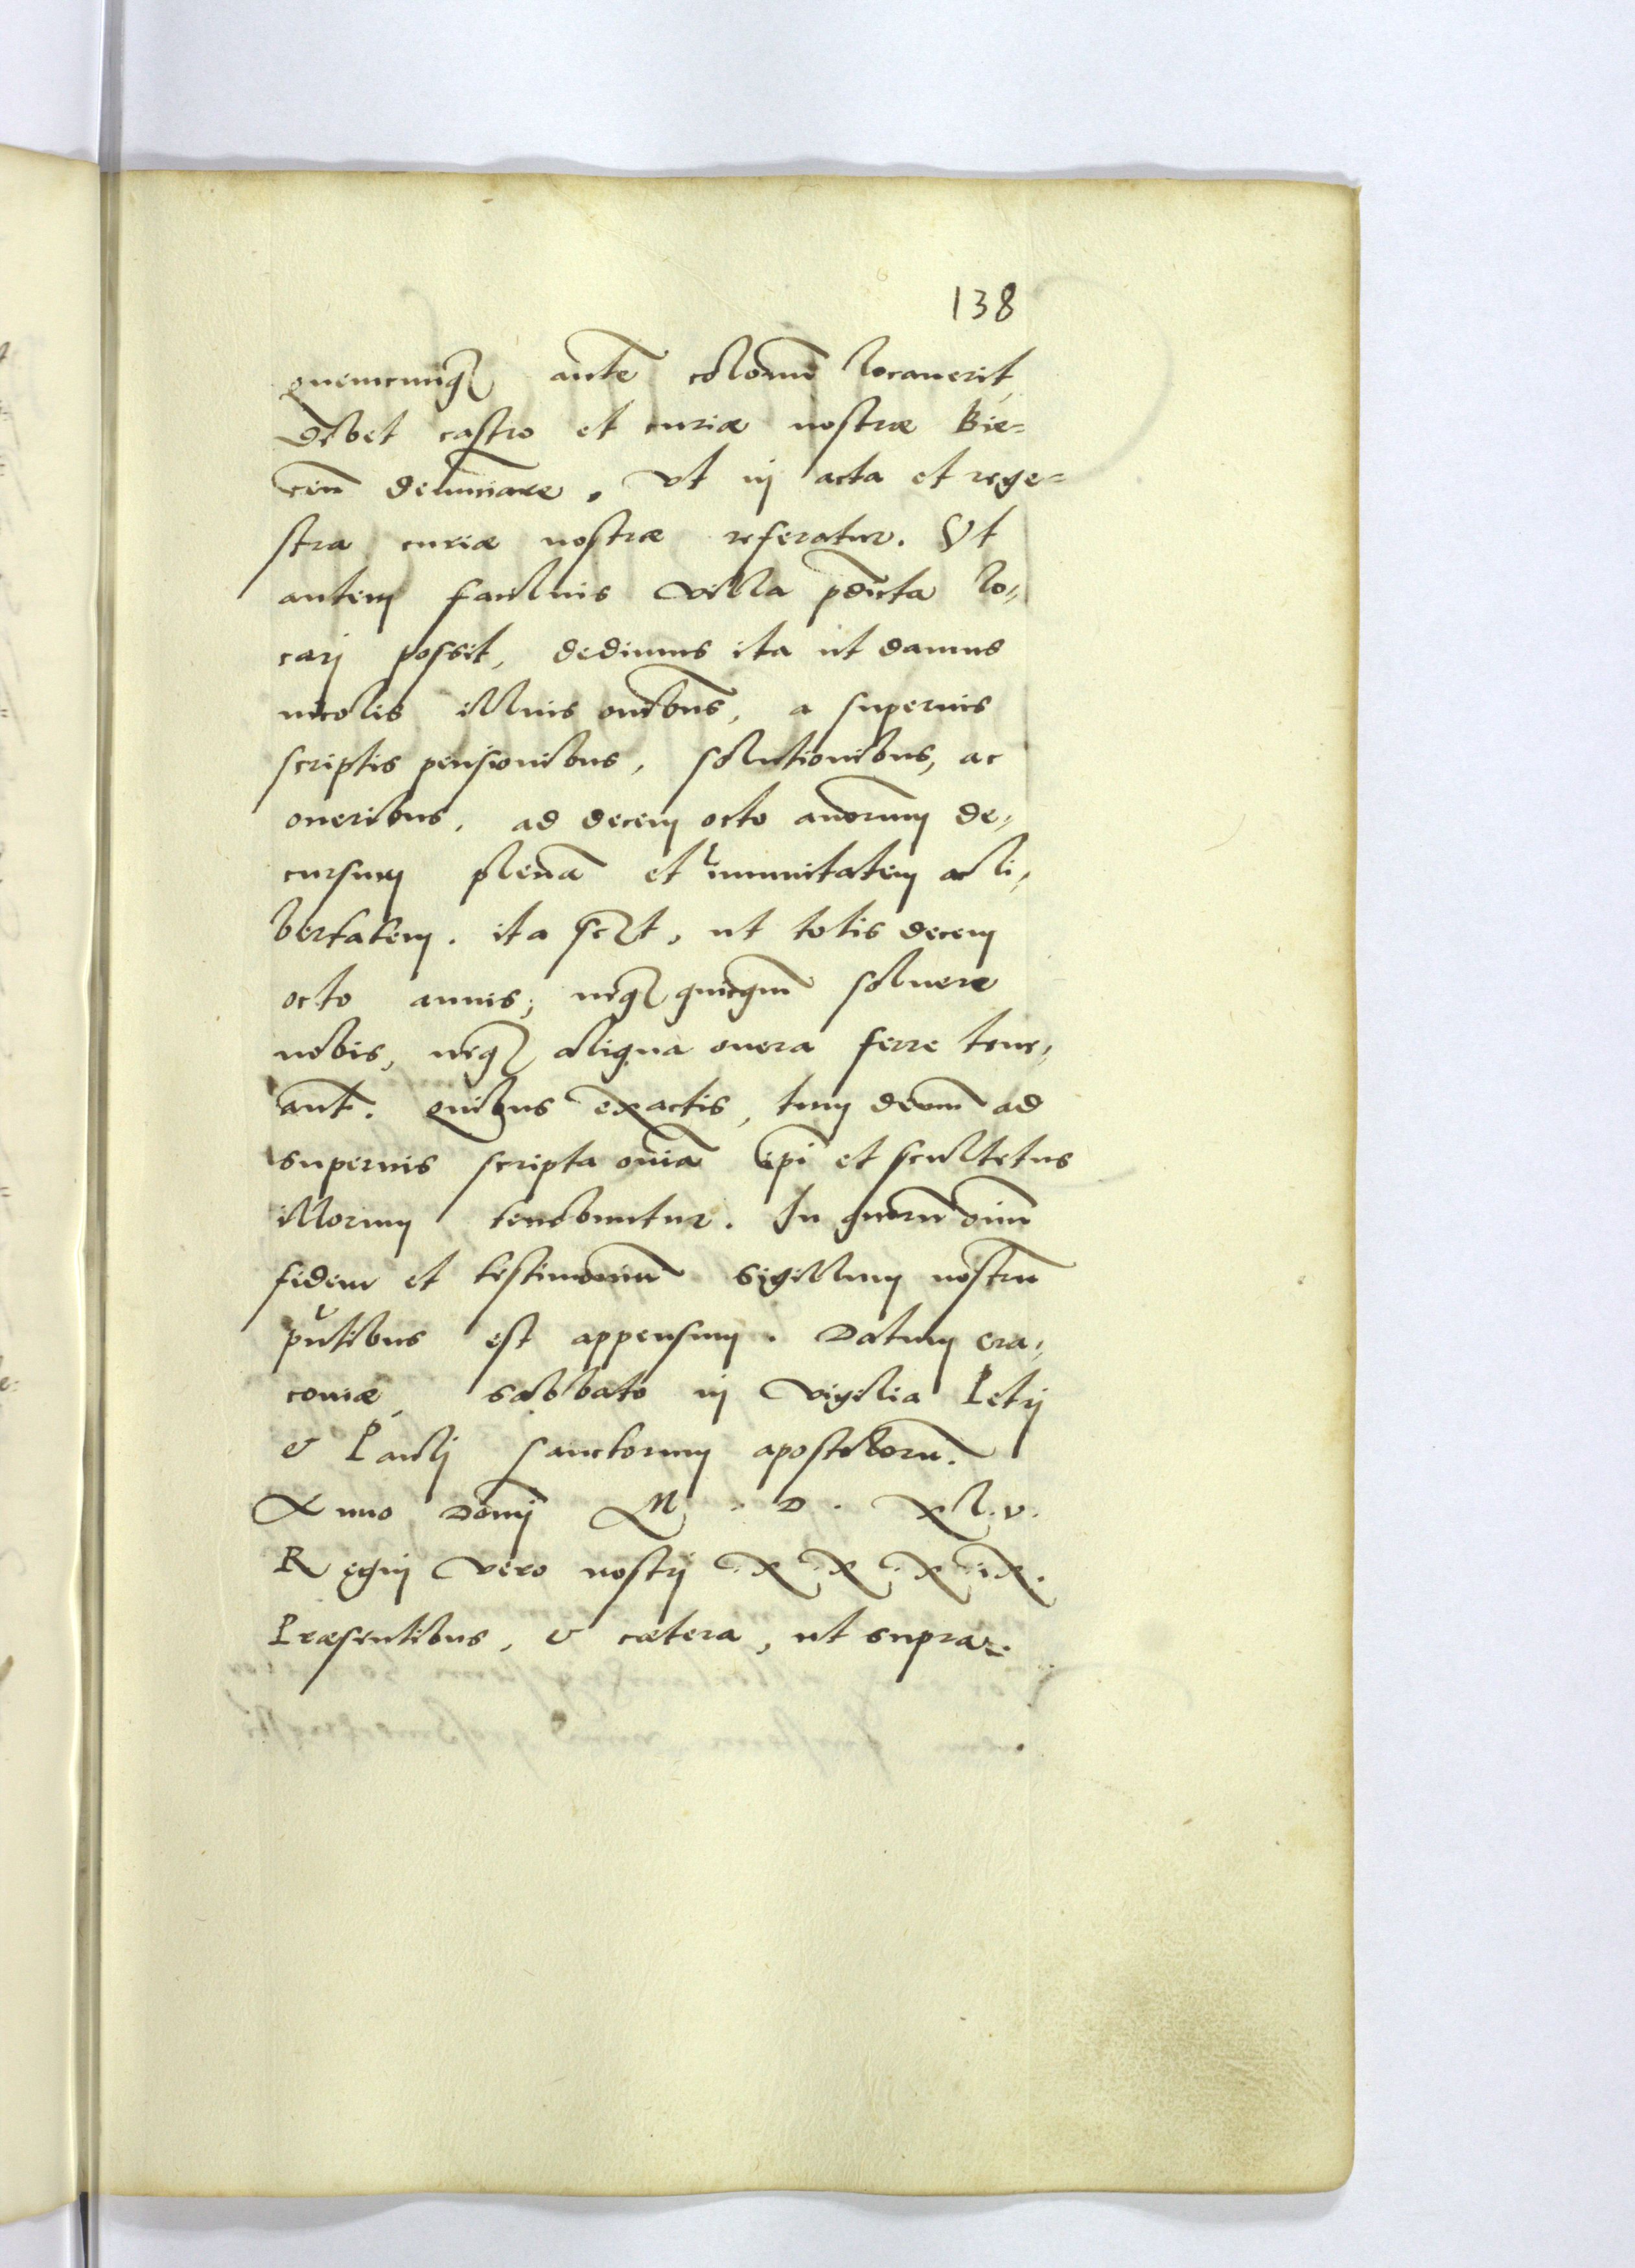 138
quemcunq(ue) autē colonū locauerit
debet castro et curiæ nostræ Bie=
ceñ denunciare, vt in acta et rege=
stra curiæ nostræ referatur. Vt
autem facilius villa p̄dicta lo=
cari possit, dedimus ita ut damus
incolis illius om̄ibus, a superius
scriptis pensionibus, solutionibus, ac
oneribus, ad decem octo annorum de=
cursum plenā et immunitatem ac li=
bertatem. ita sc̄zt, ut totis decem
octo annis, neq(ue) quicquā soluere
nobis, neq(ue) aliqua onera ferre tene=
ant̄. Quibus exactis, tum demū ad
superius scripta om̄ia ip̄i et scultetus
illorum tenebuntur. In quorū om̄iū
fidem et testimoniū sigillum nostrū
p̄ntibus est appensum. Datum Cra=
coniæ, sabbato in vigilia Petri
& Pauli sanctorum apostolorū.
Anno Domī M. D. XL.v.
Regni vero nostri XXXIX.
Præsentibus, & cætera, ut supra.